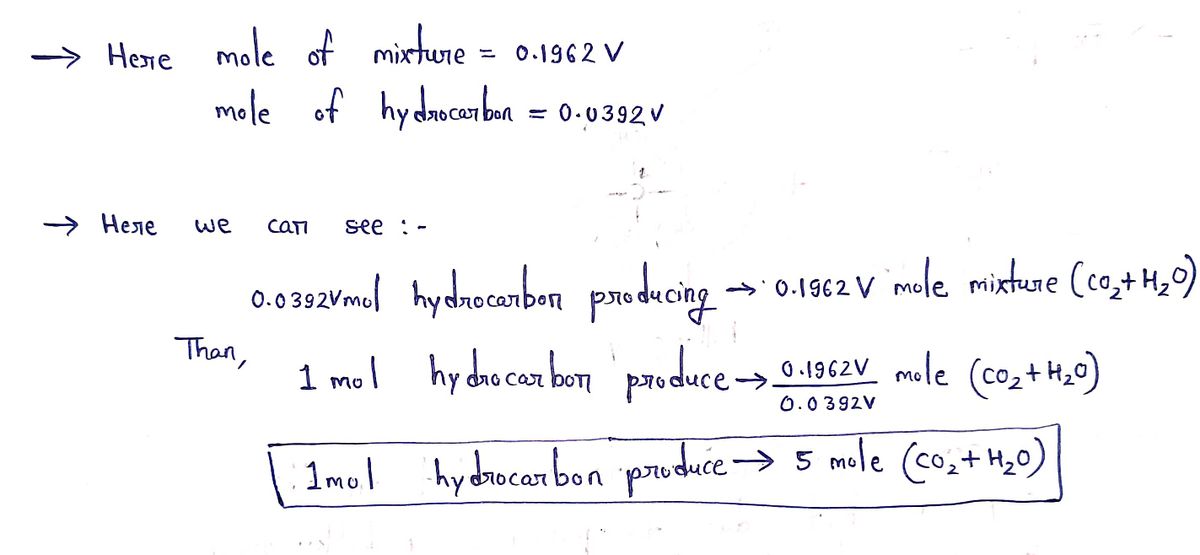 → Here mole of mixture = 0.1962 V
mole of hydrocarbon = 0.0392 V
→ Here we can see :-
0.0392Vmol hydrocarbon producing → 0.1962 V mole mixture (CO₂+H₂O)
Than,
1 mol hydrocarbon produce → 0.1962V / 0.0392V mole (CO₂+H₂O)
1mol hydrocarbon produce → 5 mole (CO₂+H₂O)